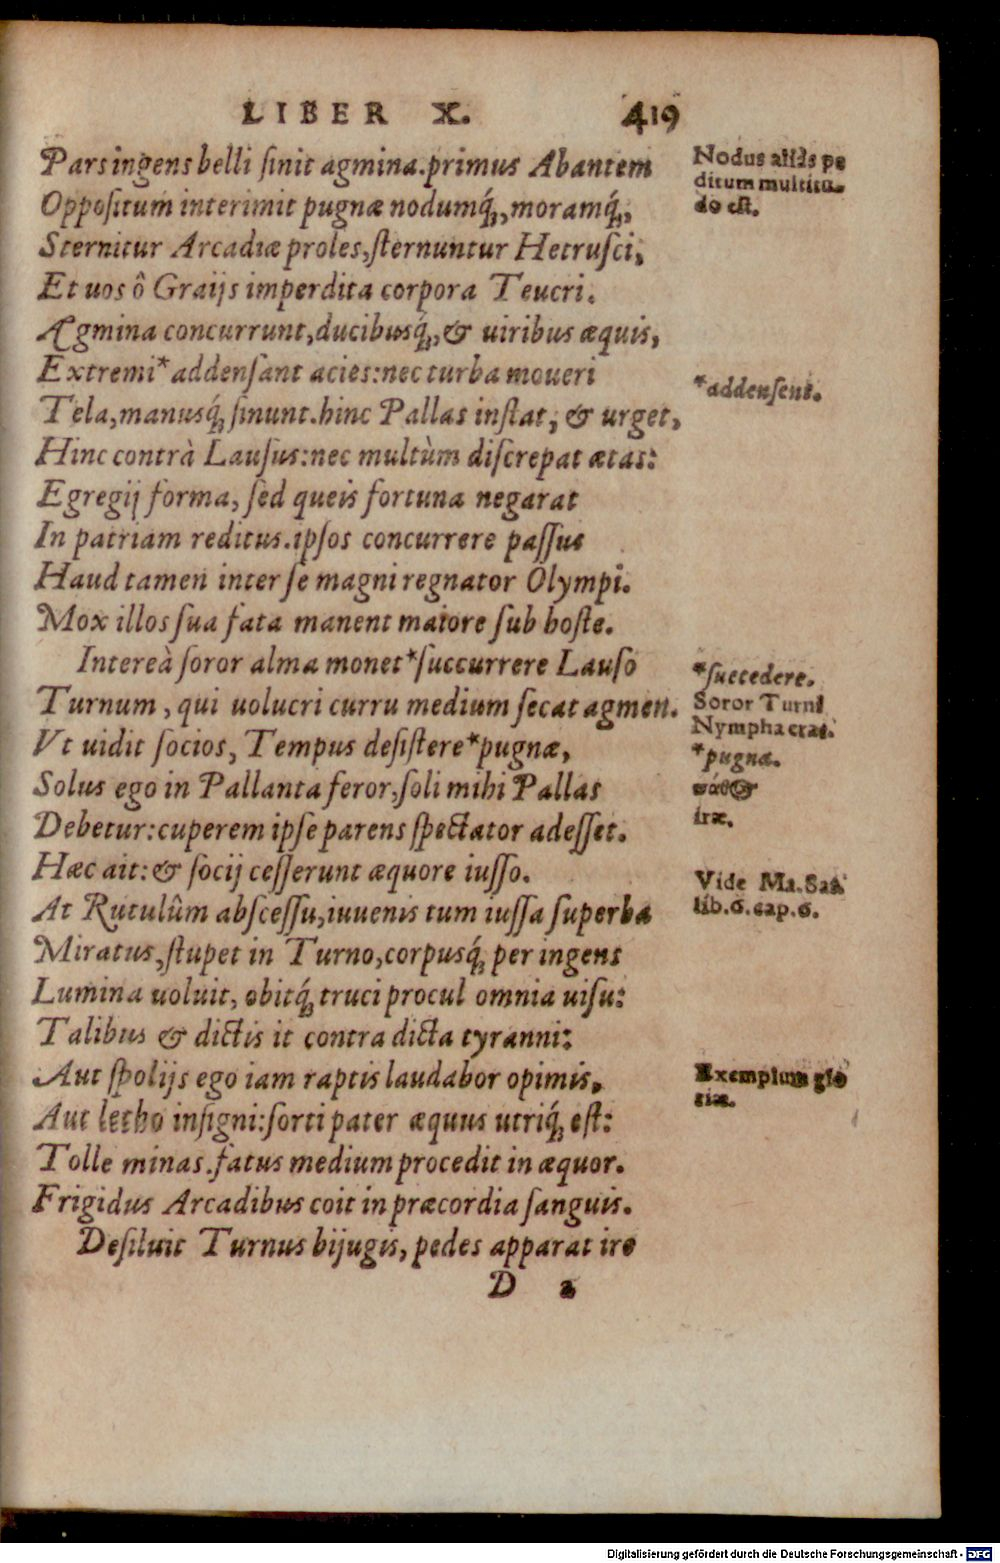 LIBER X. 419
Pars ingens belli ſinit agmina. primus Abantem
Oppoſitum interimit pugnæ nodumq́;, moramq́;,
Sternitur Arcadiæ proles, ſternuntur Hetruſci,
Et uos ô Graijs imperdita corpora Teucri.
Agmina concurrunt, ducibusq́;, & uiribus æquis,
Extremi* addenſant acies: nec turba moueri
Tela, manusq́; ſinunt. hinc Pallas inſtat, & urget,
Hinc contrà Lauſus: nec multùm diſcrepat ætas:
Egregij forma, ſed queis fortuna negarat
In patriam reditus. ipſos concurrere paſſus
Haud tamen inter ſe magni regnator Olympi.
Mox illos ſua fata manent maiore ſub hoſte.
Intereà ſoror alma monet* ſuccurrere Lauſo
Turnum, qui uolucri curru medium ſecat agmen.
Vt uidit ſocios, Tempus deſiſtere* pugnæ,
Solus ego in Pallanta feror, ſoli mihi Pallas
Debetur: cuperem ipſe parens ſpectator adeſſet.
Hæc ait: & ſocij ceſſerunt æquore iuſſo.
At Rutulûm abſceſſu, iuuenis tum iuſſa ſuperba
Miratus, ſtupet in Turno, corpusq́; per ingens
Lumina uoluit, obitq́; truci procul omnia uiſu:
Talibus & dictis it contra dicta tyranni:
Aut ſpolijs ego iam raptis laudabor opimis,
Aut letho inſigni: ſorti pater æquus utriq́; eſt:
Tolle minas. fatus medium procedit in æquor.
Frigidus Arcadibus coit in præcordia ſanguis.
Deſiluit Turnus bijugis, pedes apparat ire
D 2
Nodus aliàs pe
ditum multitu-
do eſt.
*addenſent.
*ſuccedere.
Soror Turni
Nympha erat.
*pugna.
iræ.
Vide Ma. Sat.
lib. 6. cap. 6.
Exemplum glo
riæ.
Digitalisierung gefördert durch die Deutsche Forschungsgemeinschaft - DFG